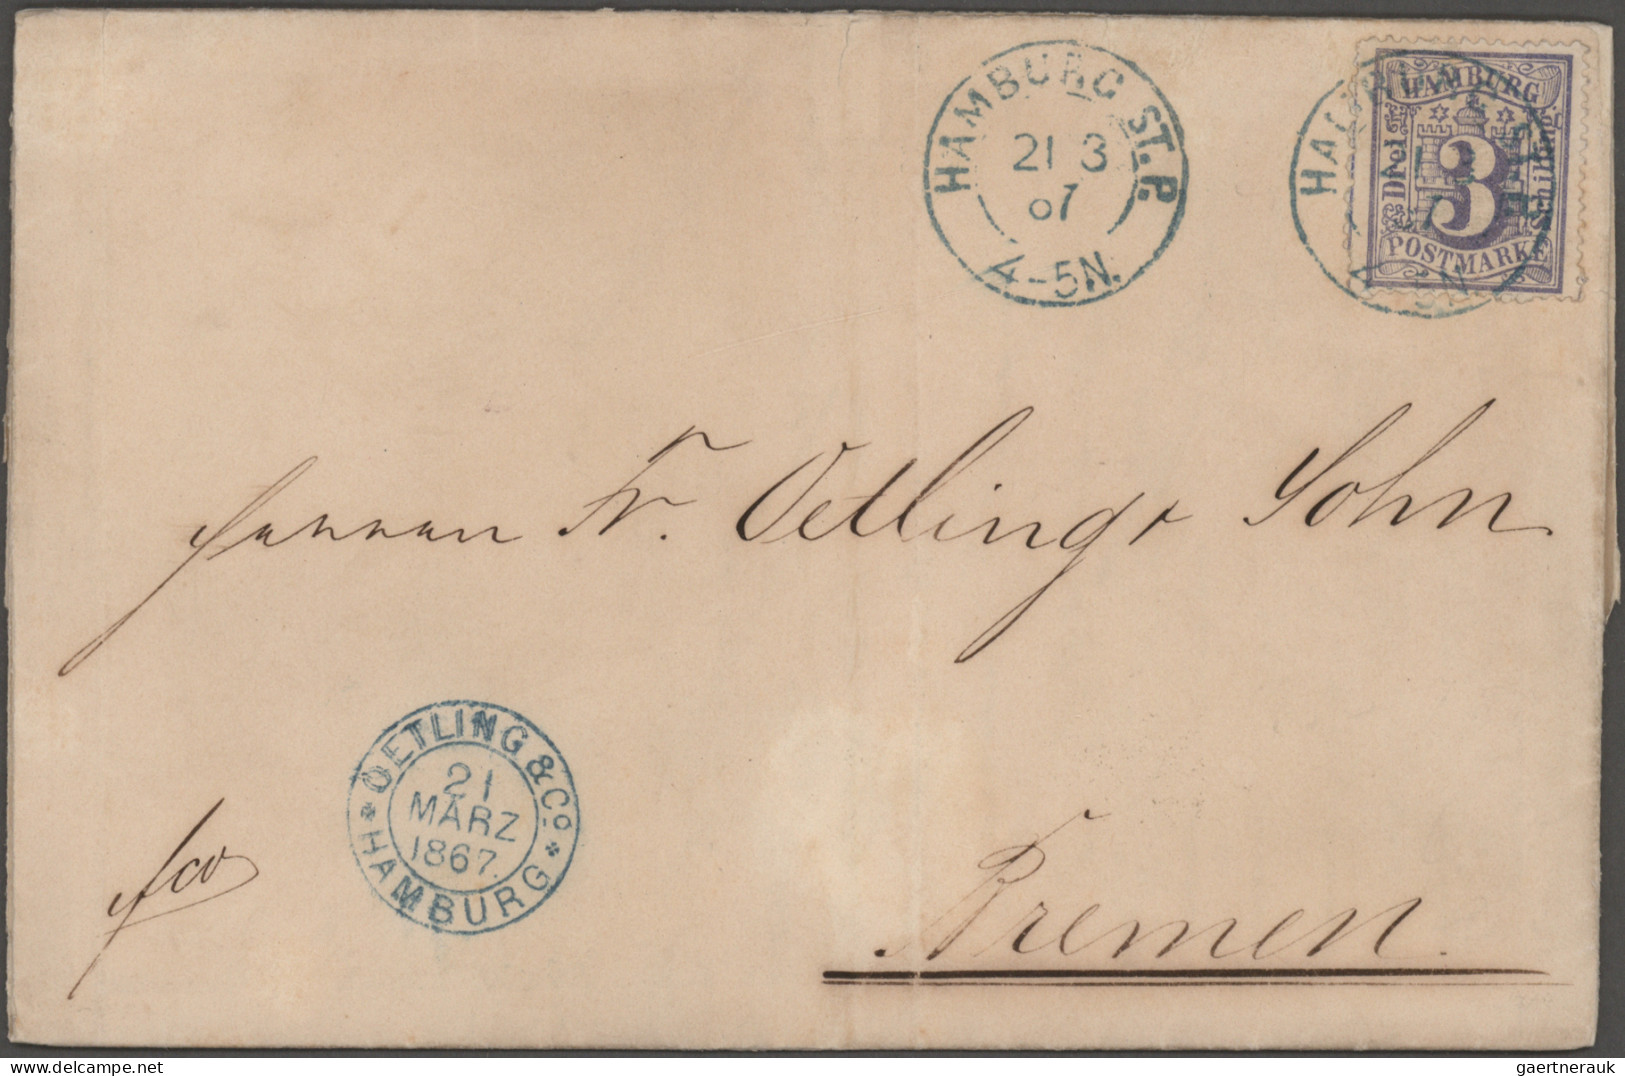 HAMBURG ST. P.
21 3
67
4-5N.
HAMBURG
Drei
3
Schilling
POSTMARKE
Herren Fr. Oetlings Sohn
OETLING & Co
21
MÄRZ
1867.
HAMBURG
fco
Bremen.
gaertnerauk